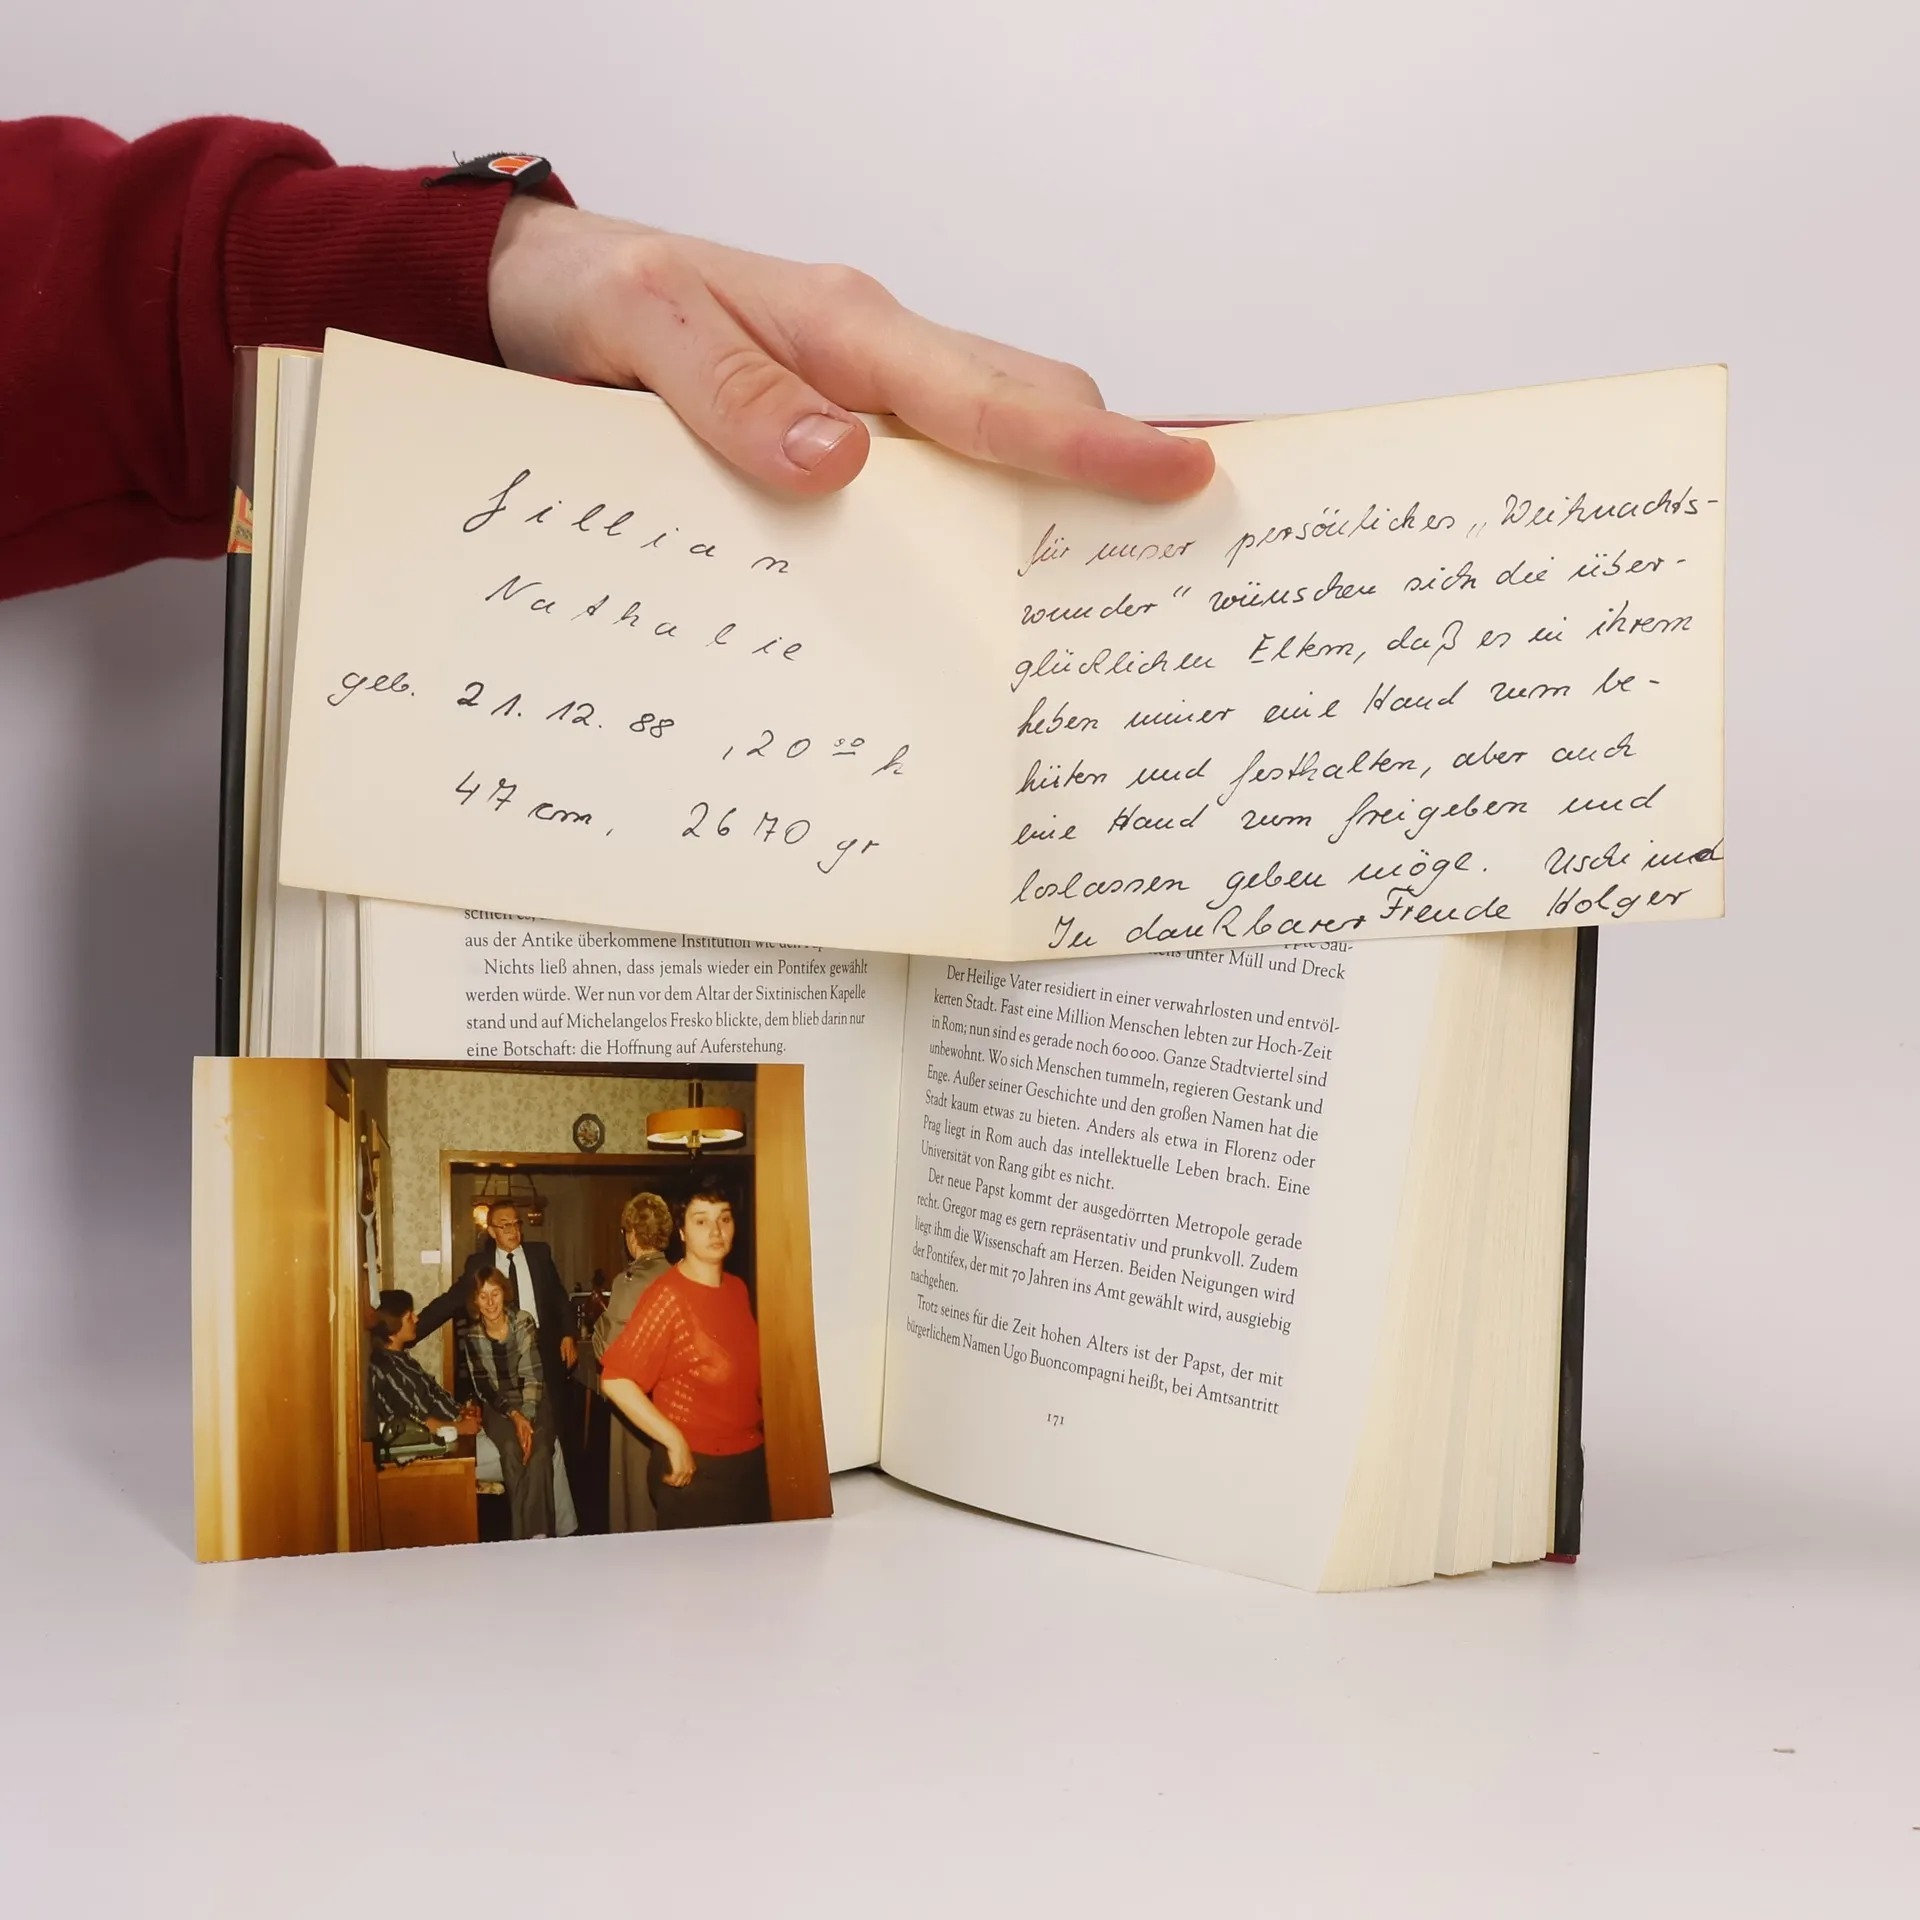 Lillian
Nathalie
geb. 21. 12. 88, 20 00 h
47 cm, 2670 gr
für unser persönliches „Weihnachts-
wunder“ wünschen sich die über-
glücklichen Eltern, daß es in ihrem
Leben immer eine Hand zum be-
hüten und festhalten, aber auch
eine Hand zum freigeben und
loslassen geben möge. Uschi und
In dankbarer Freude Holger
aus der Antike überkommene Institution wie den
Nichts ließ ahnen, dass jemals wieder ein Pontifex gewählt
werden würde. Wer nun vor dem Altar der Sixtinischen Kapelle
stand und auf Michelangelos Fresko blickte, dem blieb darin nur
eine Botschaft: die Hoffnung auf Auferstehung.
unter Müll und Dreck
Der Heilige Vater residiert in einer verwahrlosten und entvöl-
kerten Stadt. Fast eine Million Menschen lebten zur Hoch-Zeit
in Rom; nun sind es gerade noch 60 000. Ganze Stadtviertel sind
unbewohnt. Wo sich Menschen tummeln, regieren Gestank und
Enge. Außer seiner Geschichte und den großen Namen hat die
Stadt kaum etwas zu bieten. Anders als etwa in Florenz oder
Prag liegt in Rom auch das intellektuelle Leben brach. Eine
Universität von Rang gibt es nicht.
Der neue Papst kommt der ausgedörrten Metropole gerade
recht. Gregor mag es gern repräsentativ und prunkvoll. Zudem
liegt ihm die Wissenschaft am Herzen. Beiden Neigungen wird
der Pontifex, der mit 70 Jahren ins Amt gewählt wird, ausgiebig
nachgehen.
Trotz seines für die Zeit hohen Alters ist der Papst, der mit
bürgerlichem Namen Ugo Buoncompagni heißt, bei Amtsantritt
171